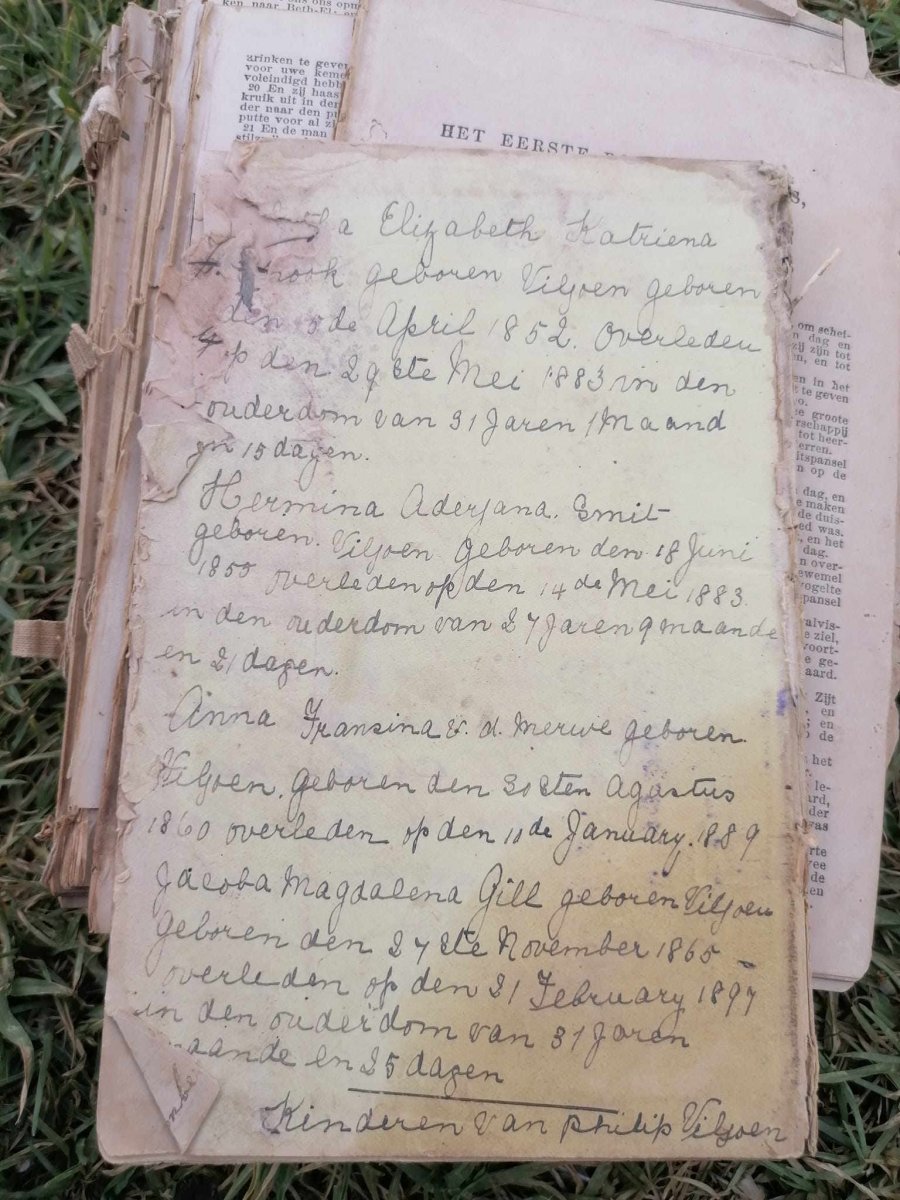 ken naar Beth-El;
arinken te geve
voor uwe keme
voleindigd hebb
20 En zij haas
kruik uit in de
der naar den pu
putte voor al z
21 En de man
HET EERSTE
s,
a Elizabeth Katriena
nook geboren Viljoen geboren
den de April 1852. Overleden
op den 29ste Mei 1883 in den
ouderdom van 31 Jaren 1 Maand
en 15 dagen.
Hermina Aderjana. Smit
geboren. Viljoen. Geboren den 18 Juni
1855 overleden op den 14 de Mei 1883.
in den ouderdom van 27 Jaren 9 maande
en 21 dagen.
Anna Fransina v. d. Merwe geboren.
Viljoen. geboren den 30sten Agustus
1860 overleden op den 11de January. 1889
Jacoba Magdalena Gill geboren Viljoen
geboren den 27ste November 1865
overleden op den 21 February 1897
in den ouderdom van 31 Jaren
maande en 25 dagen
Kinderen van Philip Viljoen
om schef-
dag en
zij zijn tot
en, en tot
en in het
te geven
groote
rschappij
tot heer-
erren.
itspansel
n op de
dag, en
e maken
de duis-
ed was.
, en het
dag.
n over-
ewemel
vogelte
pansel
alvis-
e ziel,
voort-
e ge-
aard.
Zijt
en
; en
de
het
le-
ard,
der
was
rte
vee
de
en